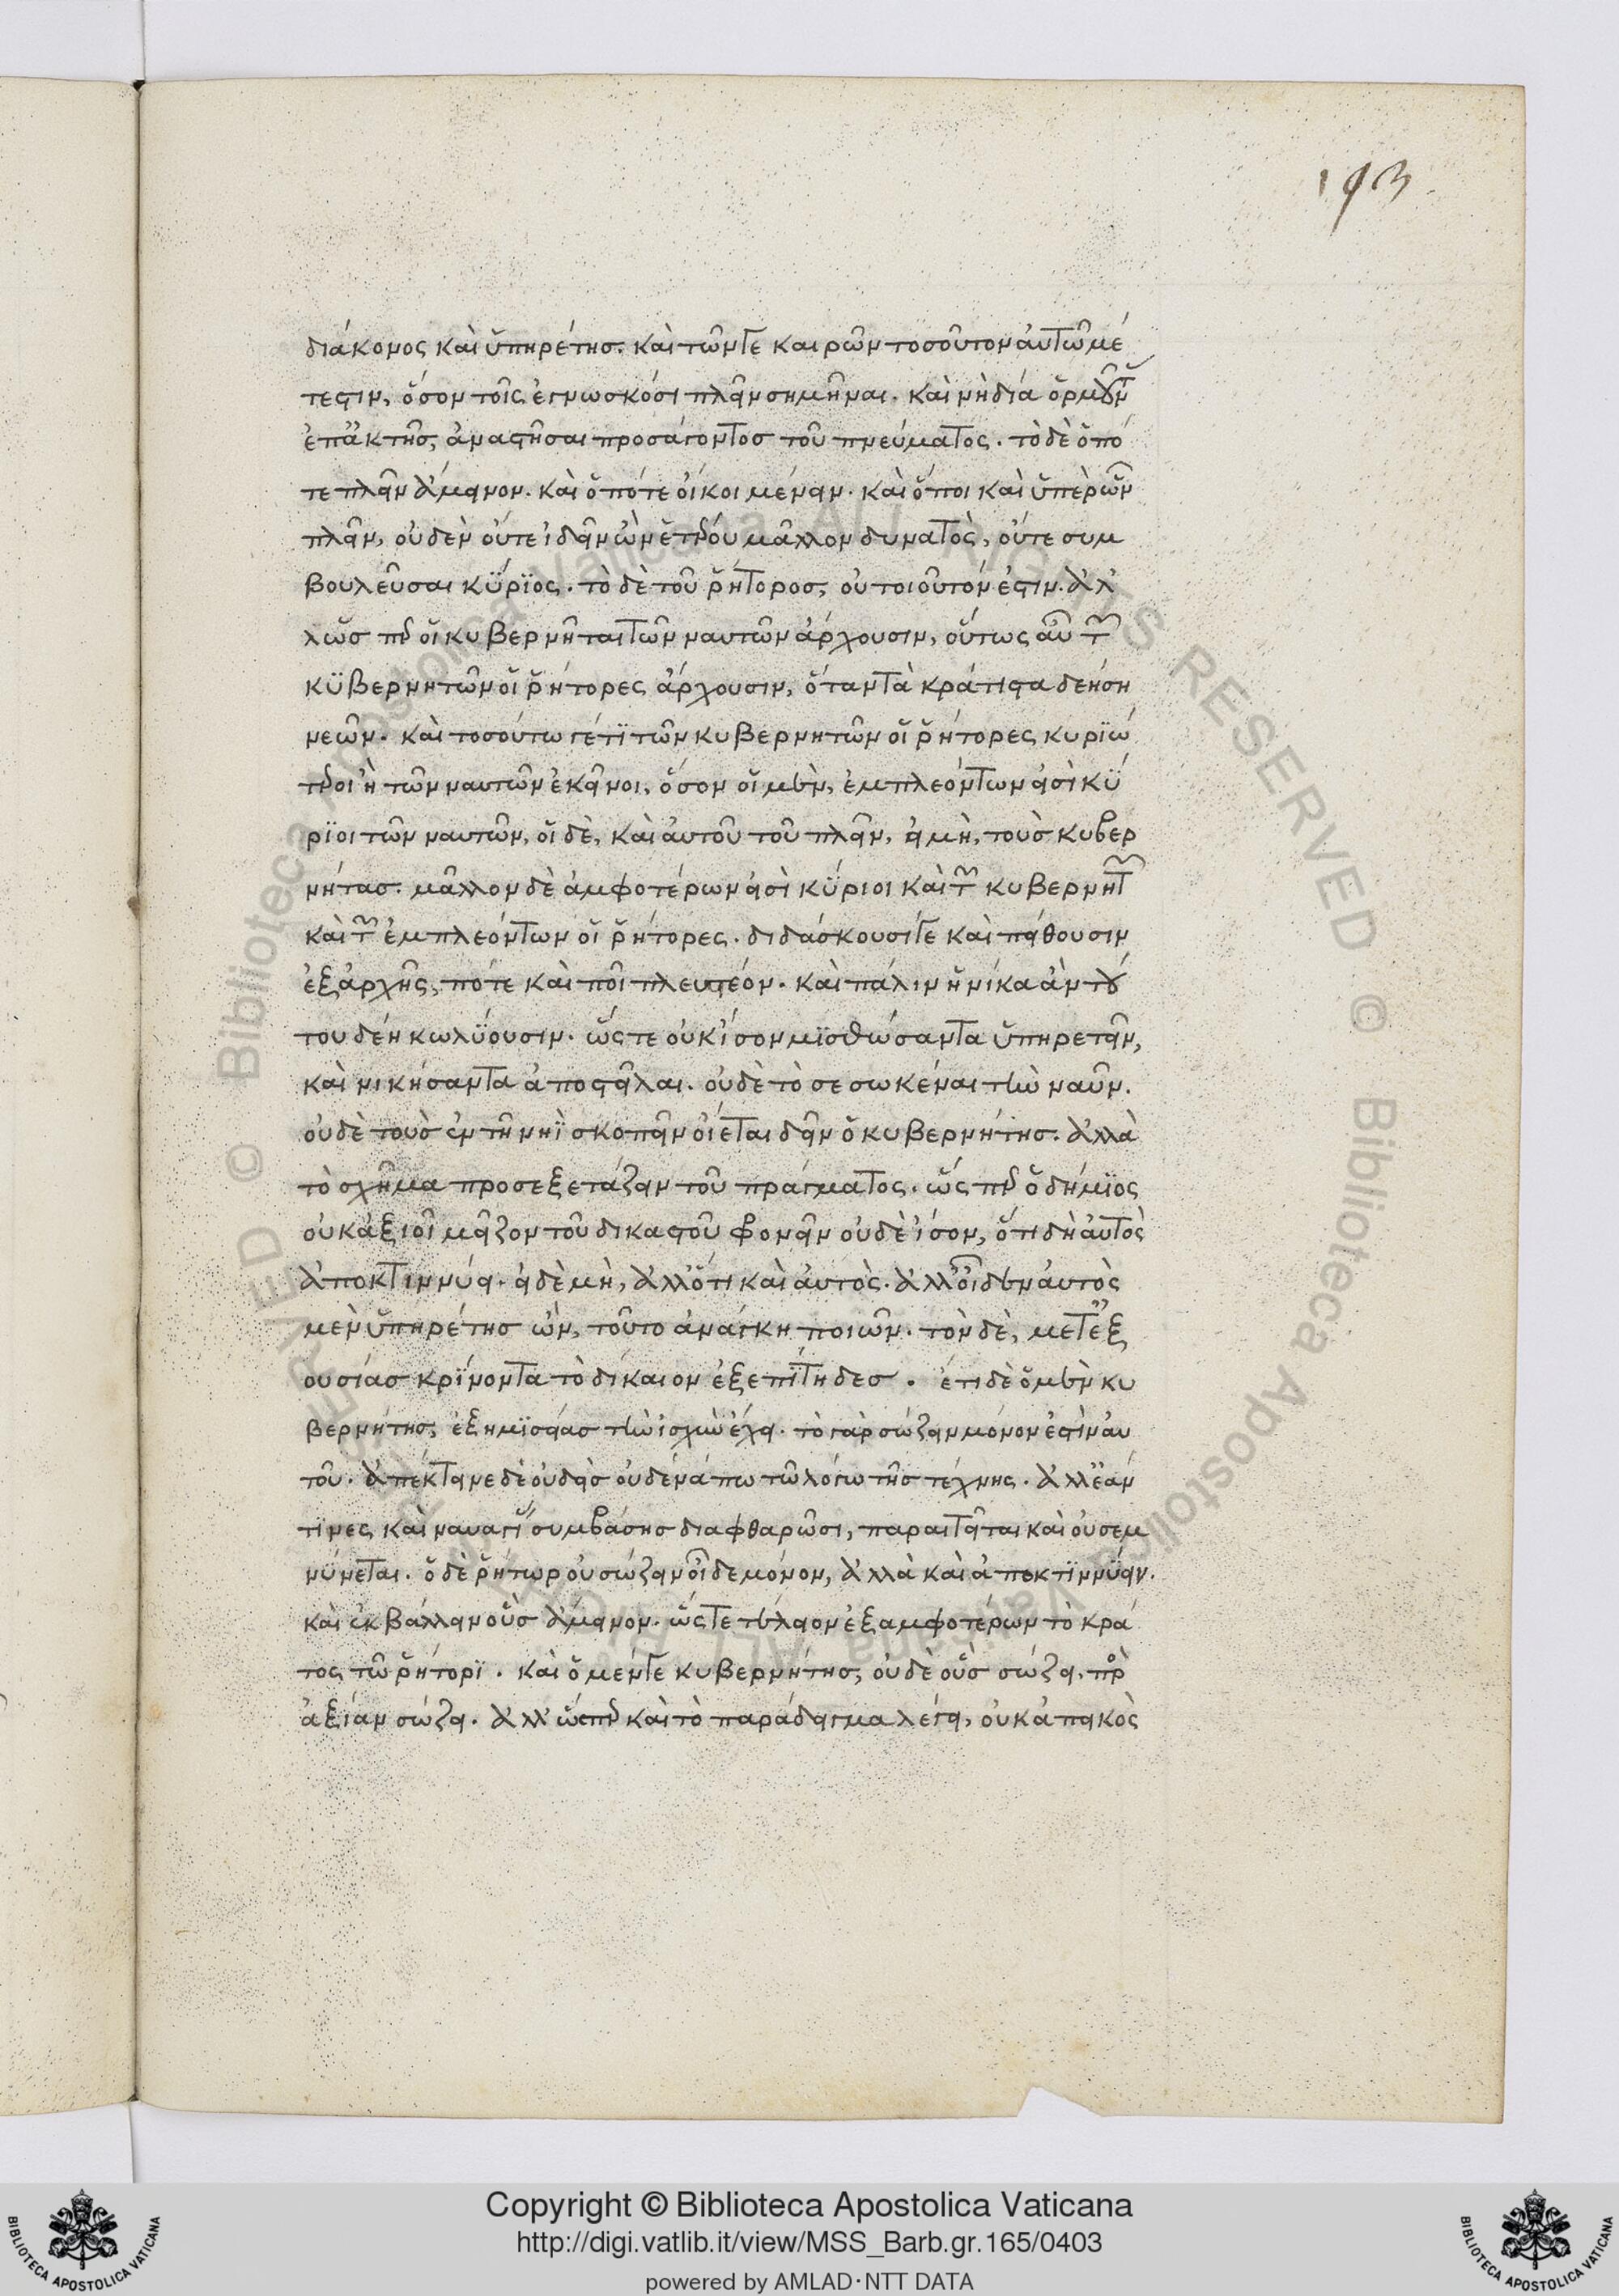 193
διάκονος καὶ ὑπηρέτης. καὶ τῶν γε καιρῶν τοσοῦτον αὐτῶ μέ
τεστιν, ὅσον τοῖς ἐγνωσκόσι πλεῖν σημῆναι. καὶ μὴ δία ὁρμοῦντ
ἐπ ἀκτῆς, ἀναστῆσαι προσάγοντος τοῦ πνεύματος. τὸ δὲ ὁπό
τε πλεῖν ἄμεινον. καὶ ὁπότε οἴκοι μένειν. καὶ ὅποι καὶ ὑπὲρ ὧν
πλεῖν, οὐδὲν οὔτε ἰδεῖν ὢν ἑτέρου μᾶλλον δυνατὸς, οὔτε συμ
βουλεῦσαι κύριος. τὸ δὲ τοῦ ῥήτορος, οὐ τοιοῦτόν ἐστιν. ἀλ
λ ὥσπερ οἱ κυβερνῆται τῶν ναυτῶν ἄρχουσιν, οὕτως αὖ τῶν
κυβερνητῶν οἱ ῥήτορες ἄρχουσιν, ὅταν τὰ κράτιστα δεήση
νεῶν. καὶ τοσούτω γ ἔτι τῶν κυβερνητῶν οἱ ῥήτορες κυριώ
τεροι ἢ τῶν ναυτῶν ἐκεῖνοι, ὅσον οἱ μὲν, ἐμπλεόντων εἰσὶ κύ
ριοι τῶν ναυτῶν, οἱ δὲ, καὶ αὐτοῦ τοῦ πλεῖν, ἢ μὴ, τοὺς κυβερ
νήτας. μᾶλλον δὲ ἀμφοτέρων εἰσὶ κύριοι καὶ τῶν κυβερνητῶν
καὶ τῶν ἐμπλεόντων οἱ ῥήτορες. διδάσκουσί γε καὶ πείθουσιν
ἐξ ἀρχῆς, πότε καὶ ποῖ πλευστέον. καὶ πάλιν ἡνίκα ἂν τού
του δέη κωλύουσιν. ὥστε οὐκ ἴσον μισθώσαντα ὑπηρετεῖν,
καὶ νικήσαντα ἀποστεῖλαι. οὐδὲ τὸ σεσωκέναι τὴν ναῦν.
οὐδὲ τοὺς ἐν τῆ νηῒ σκοπεῖν οἴεται δεῖν ὁ κυβερνήτης. ἀλλὰ
τὸ σχῆμα προσεξετάζειν τοῦ πράγματος. ὥσπερ ὁ δήμιος
οὐκ ἀξιοῖ μεῖζον τοῦ δικαστοῦ φρονεῖν οὐδὲ ἴσον, ὅτι δὴ αὐτὸς
ἀποκτιννύει. εἰ δὲ μὴ, ἀλλ ὅτι καὶ αὐτὸς. ἀλλ οἶδεν αὐτὸς
μὲν ὑπηρέτης ὢν, τοῦτο ἀνάγκη ποιῶν. τὸν δὲ, μετ ἐξ
ουσίας κρίνοντα τὸ δίκαιον ἐξεπίτηδες. ἔτι δὲ ὁ μὲν κυ
βερνήτης, ἐξ ἡμισείας τὴν ἰσχὺν ἔχει. τὸ γὰρ σώζειν μόνον ἐστὶν αὐ
τοῦ. ἀπέκτεινε δὲ οὐδεὶς οὐδένά πω τῶ λόγω τῆς τέχνης. ἀλλ ἐάν
τινες καὶ ναυαγίας συμβάσης διαφθαρῶσι, παραιτεῖται καὶ οὐ σεμ
νύνεται. ὁ δὲ ῥήτωρ οὐ σώζειν οἶδε μόνον, ἀλλὰ καὶ ἀποκτιννύειν.
καὶ ἐκβάλλειν οὓς ἄμεινον. ὥστε τέλειον ἐξ ἀμφοτέρων τὸ κρά
τος τῶ ῥήτορι. καὶ ὁ μέν γε κυβερνήτης, οὐδὲ οὓς σώζει, πρὸς
ἀξίαν σώζει. ἀλλ ὥσπερ καὶ τὸ παράδειγμα λέγει, οὐκ ἀπεικὸς
Copyright © Biblioteca Apostolica Vaticana
http://digi.vatlib.it/view/MSS_Barb.gr.165/0403
powered by AMLAD·NTT DATA
BIBLIOTECA APOSTOLICA VATICANA
BIBLIOTECA APOSTOLICA VATICANA